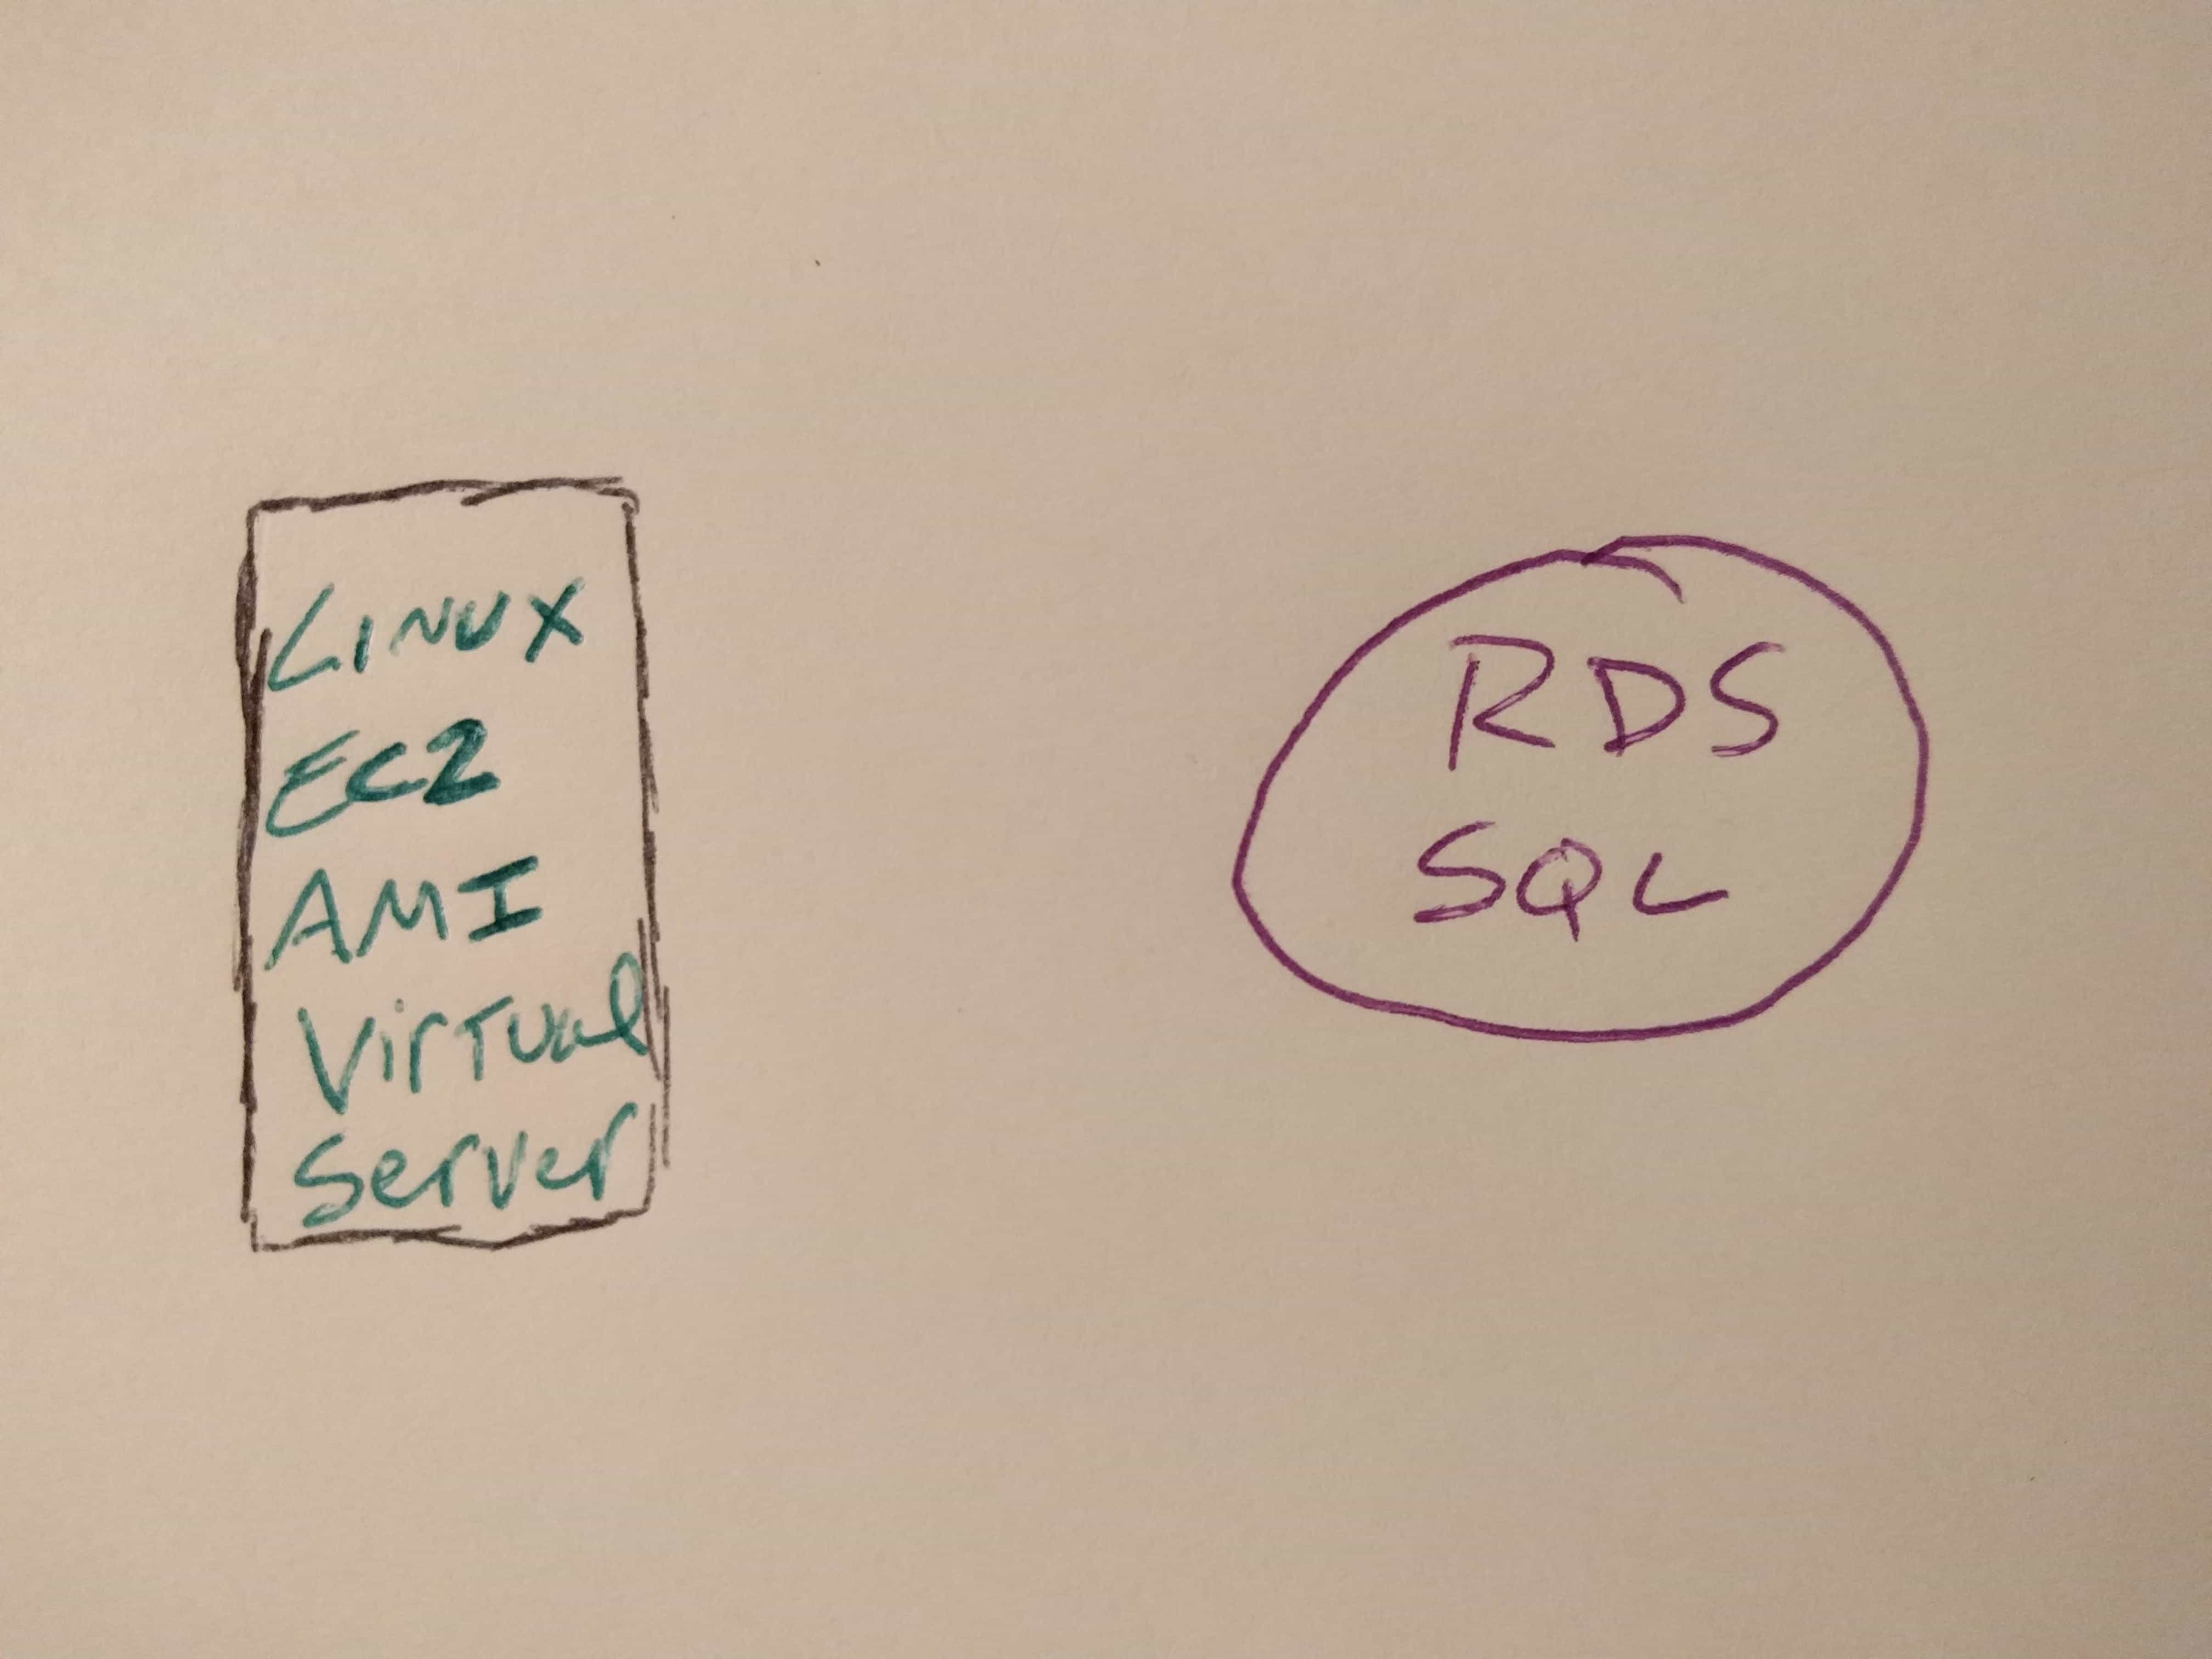 LINUX
EC2
AMI
Virtual
Server
RDS
SQL